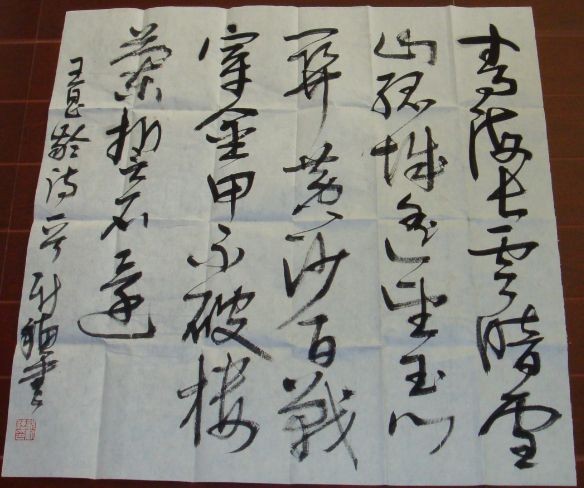 青海长雲暗雪
山孤城遥望玉门
關黄沙百戰
穿金甲不破楼
蘭誓不還
王昌龄诗一首 書